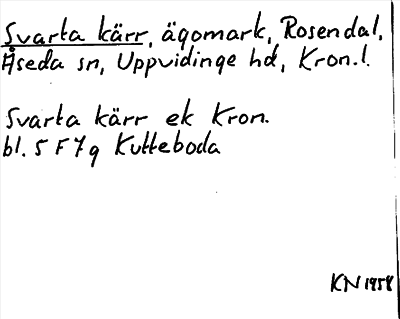 Svarta kärr, ägomark, Rosendal,
Åseda sn, Uppvidinge hd, Kron.l.
Svarta kärr ek Kron.
bl. 5 F 7 g Kutteboda
KN 1958